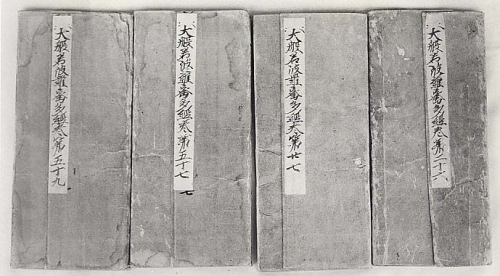 大般若波羅蜜多經卷第二十六
大般若波羅蜜多經卷第廿七
大般若波羅蜜多經卷第五十七
大般若波羅蜜多經卷第五十九